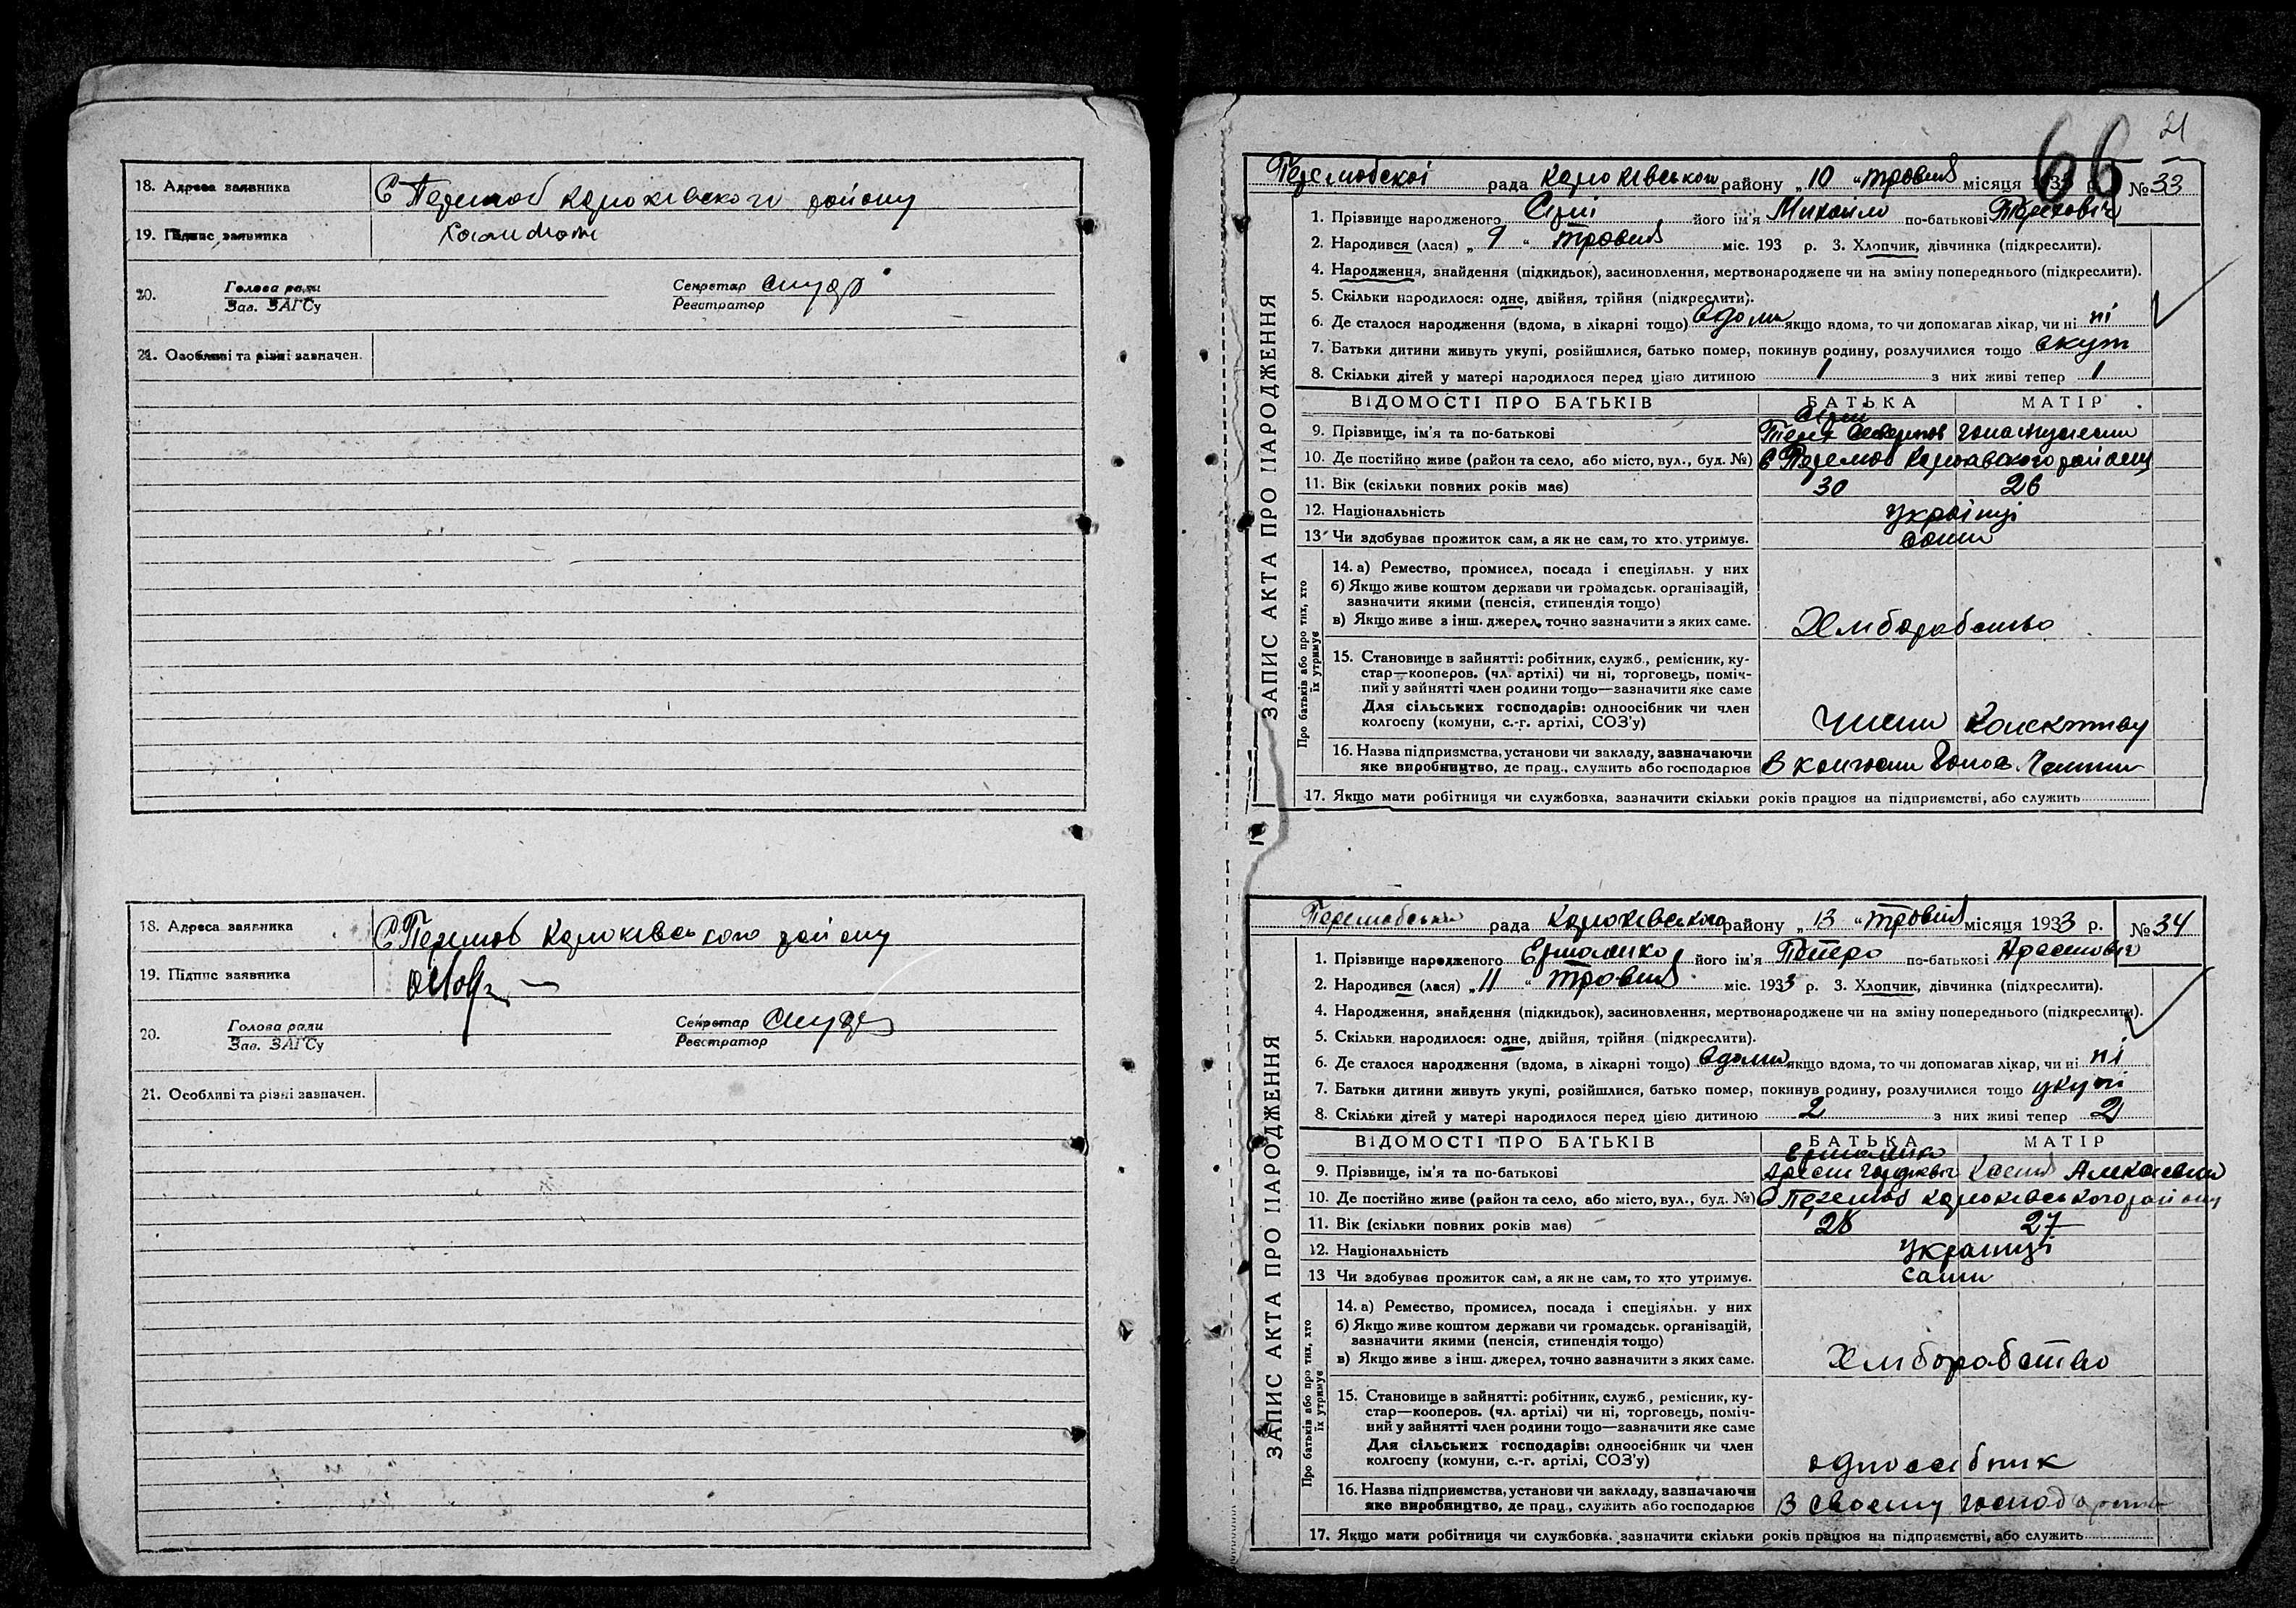 18. Адреса заявника С Перелюб Корюківского району
19. Підпис заявника
20. Голова ради Секретар
Зав. ЗАГСу Реєстратор
21. Особливі та різні зазначен.
18. Адреса заявника С Перелюб Корюківського району
19. Підпис заявника
20. Голова ради Секретар
Зав. ЗАГСу Реєстратор
21. Особливі та різні зазначен.
66 21
Перелюбскої рада Корюківського району „10 “ травня місяця 193 р. № 33
ЗАПИС АКТА ПРО НАРОДЖЕННЯ
1. Прізвище народженого його ім'я Михайло по-батькові
2. Народився (лася) „ 9 “ травня міс. 193 р. 3. Хлопчик, дівчинка (підкреслити).
4. Народження, знайдення (підкидьок), засиновлення, мертвонароджене чи на зміну попереднього (підкреслити).
5. Скільки народилося: одне, двійня, трійня (підкреслити).
6. Де сталося народження (вдома, в лікарні тощо) вдома якщо вдома, то чи допомагав лікар, чи ні ні
7. Батьки дитини живуть укупі, розійшлися, батько помер, покинув родину, розлучилися тощо вкупі
8. Скільки дітей у матері народилося перед цією дитиною 1 з них живі тепер 1
ВІДОМОСТІ ПРО БАТЬКІВ БАТЬКА МАТІР
9. Прізвище, ім'я та по-батькові
10. Де постійно живе (район та село, або місто, вул., буд. №) с Перелюб Корюківского району
11. Вік (скільки повних років має) 30 26
12. Національність Українці
13 Чи здобував прожиток сам, а як не сам, то хто утримує. сами
Про батьків або про тих, хто їх утримує
14. а) Ремество, промисел, посада і спеціяльн. у них
б) Якщо живе коштом держави чи громадськ. організацій,
зазначити якими (пенсія, стипендія тощо)
в) Якщо живе з інш. джерел, точно зазначити з яких саме. Хліборобство
15. Становище в зайнятті: робітник, служб., ремісник, ку-
стар—кооперов. (чл. артілі) чи ні, торговець, поміч-
ний у зайнятті член родини тощо—зазначити яке саме
Для сільських господарів: одноосібник чи член
колгоспу (комуни, с.-г. артілі, СОЗ'у) члени
16. Назва підприємства, установи чи закладу, зазначаючи
яке виробництво, де прац., служить або господарює В
17. Якщо мати робітниця чи службовка, зазначити скільки років працює на підприємстві, або служить
рада Корюківського району „ 13 “ травня місяця 1933 р. № 34
ЗАПИС АКТА ПРО НАРОДЖЕННЯ
1. Прізвище народженого Єрмоленко його ім'я Петро по-батькові
2. Народився (лася) „ 11 “ травня міс. 1933 р. 3. Хлопчик, дівчинка (підкреслити).
4. Народження, знайдення (підкидьок), засиновлення, мертвонароджене чи на зміну попереднього (підкреслити).
5. Скільки народилося: одне, двійня, трійня (підкреслити).
6. Де сталося народження (вдома, в лікарні тощо) вдома якщо вдома, то чи допомагав лікар, чи ні ні
7. Батьки дитини живуть укупі, розійшлися, батько помер, покинув родину, розлучилися тощо укупі
8. Скільки дітей у матері народилося перед цією дитиною 2 з них живі тепер 2
ВІДОМОСТІ ПРО БАТЬКІВ БАТЬКА МАТІР
9. Прізвище, ім'я та по-батькові
10. Де постійно живе (район та село, або місто, вул., буд. №) С Перелюб Корюківського району
11. Вік (скільки повних років має) 28 27
12. Національність Українці
13 Чи здобував прожиток сам, а як не сам, то хто утримує. сами
Про батьків або про тих, хто їх утримує
14. а) Ремество, промисел, посада і спеціяльн. у них
б) Якщо живе коштом держави чи громадськ. організацій,
зазначити якими (пенсія, стипендія тощо)
в) Якщо живе з інш. джерел, точно зазначити з яких саме. Хліборобство
15. Становище в зайнятті: робітник, служб., ремісник, ку-
стар—кооперов. (чл. артілі) чи ні, торговець, поміч-
ний у зайнятті член родини тощо—зазначити яке саме
Для сільських господарів: одноосібник чи член
колгоспу (комуни, с.-г. артілі, СОЗ'у) одноосібник
16. Назва підприємства, установи чи закладу, зазначаючи
яке виробництво, де прац., служить або господарює В своєму
17. Якщо мати робітниця чи службовка, зазначити скільки років працює на підприємстві, або служить